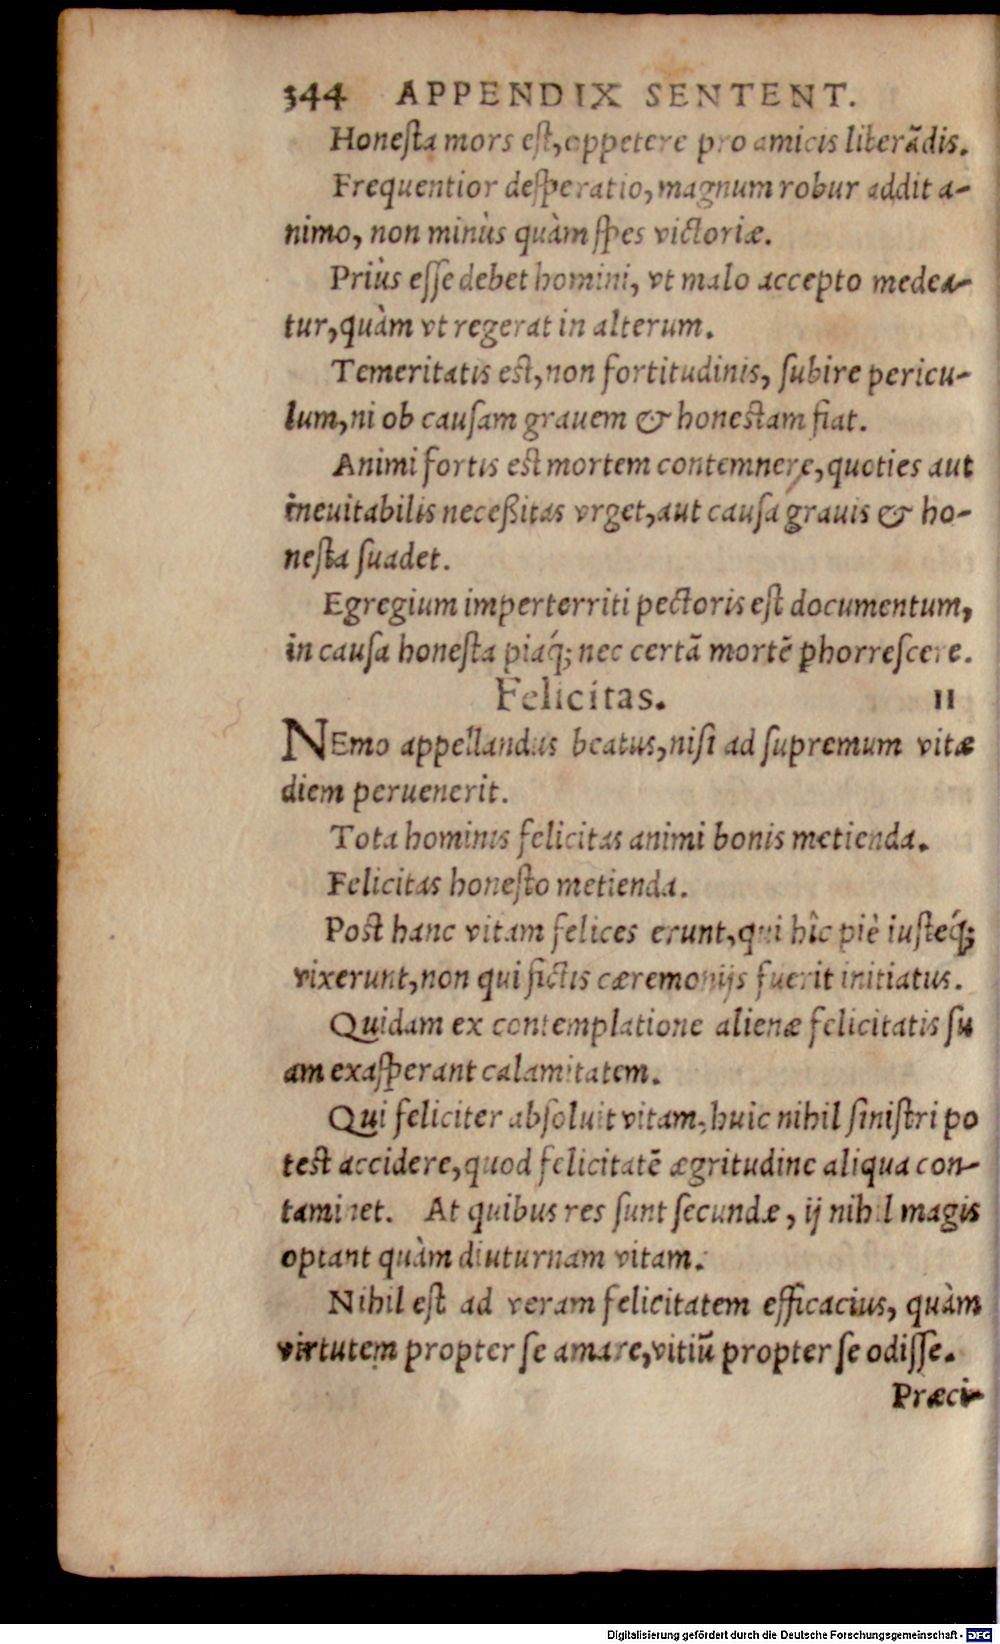 344 APPENDIX SENTENT.
Honesta mors est, oppetere pro amicis liberãdis.
Frequentior desperatio, magnum robur addit a-
nimo, non minùs quàm spes victoriæ.
Priùs esse debet homini, vt malo accepto medea-
tur, quàm vt regerat in alterum.
Temeritatis est, non fortitudinis, subire pericu-
lum, ni ob causam grauem & honestam fiat.
Animi fortis est mortem contemnere, quoties aut
ineuitabilis neceßitas vrget, aut causa grauis & ho-
nesta suadet.
Egregium imperterriti pectoris est documentum,
in causa honesta piaq́; nec certã mortẽ ꝑhorrescere.
Felicitas. 11
NEmo appellandus beatus, nisi ad supremum vitæ
diem peruenerit.
Tota hominis felicitas animi bonis metienda.
Felicitas honesto metienda.
Post hanc vitam felices erunt, qui hîc piè iusteq́;
vixerunt, non qui fictis cæremonijs fuerit initiatus.
Quidam ex contemplatione alienæ felicitatis su
am exasperant calamitatem.
Qui feliciter absoluit vitam, huic nihil sinistri po
test accidere, quod felicitatẽ ægritudine aliqua con-
taminet. At quibus res sunt secundæ, ij nihil magis
optant quàm diuturnam vitam.
Nihil est ad veram felicitatem efficacius, quàm
virtutem propter se amare, vitiũ propter se odisse.
Præci-
Digitalisierung gefördert durch die Deutsche Forschungsgemeinschaft - DFG